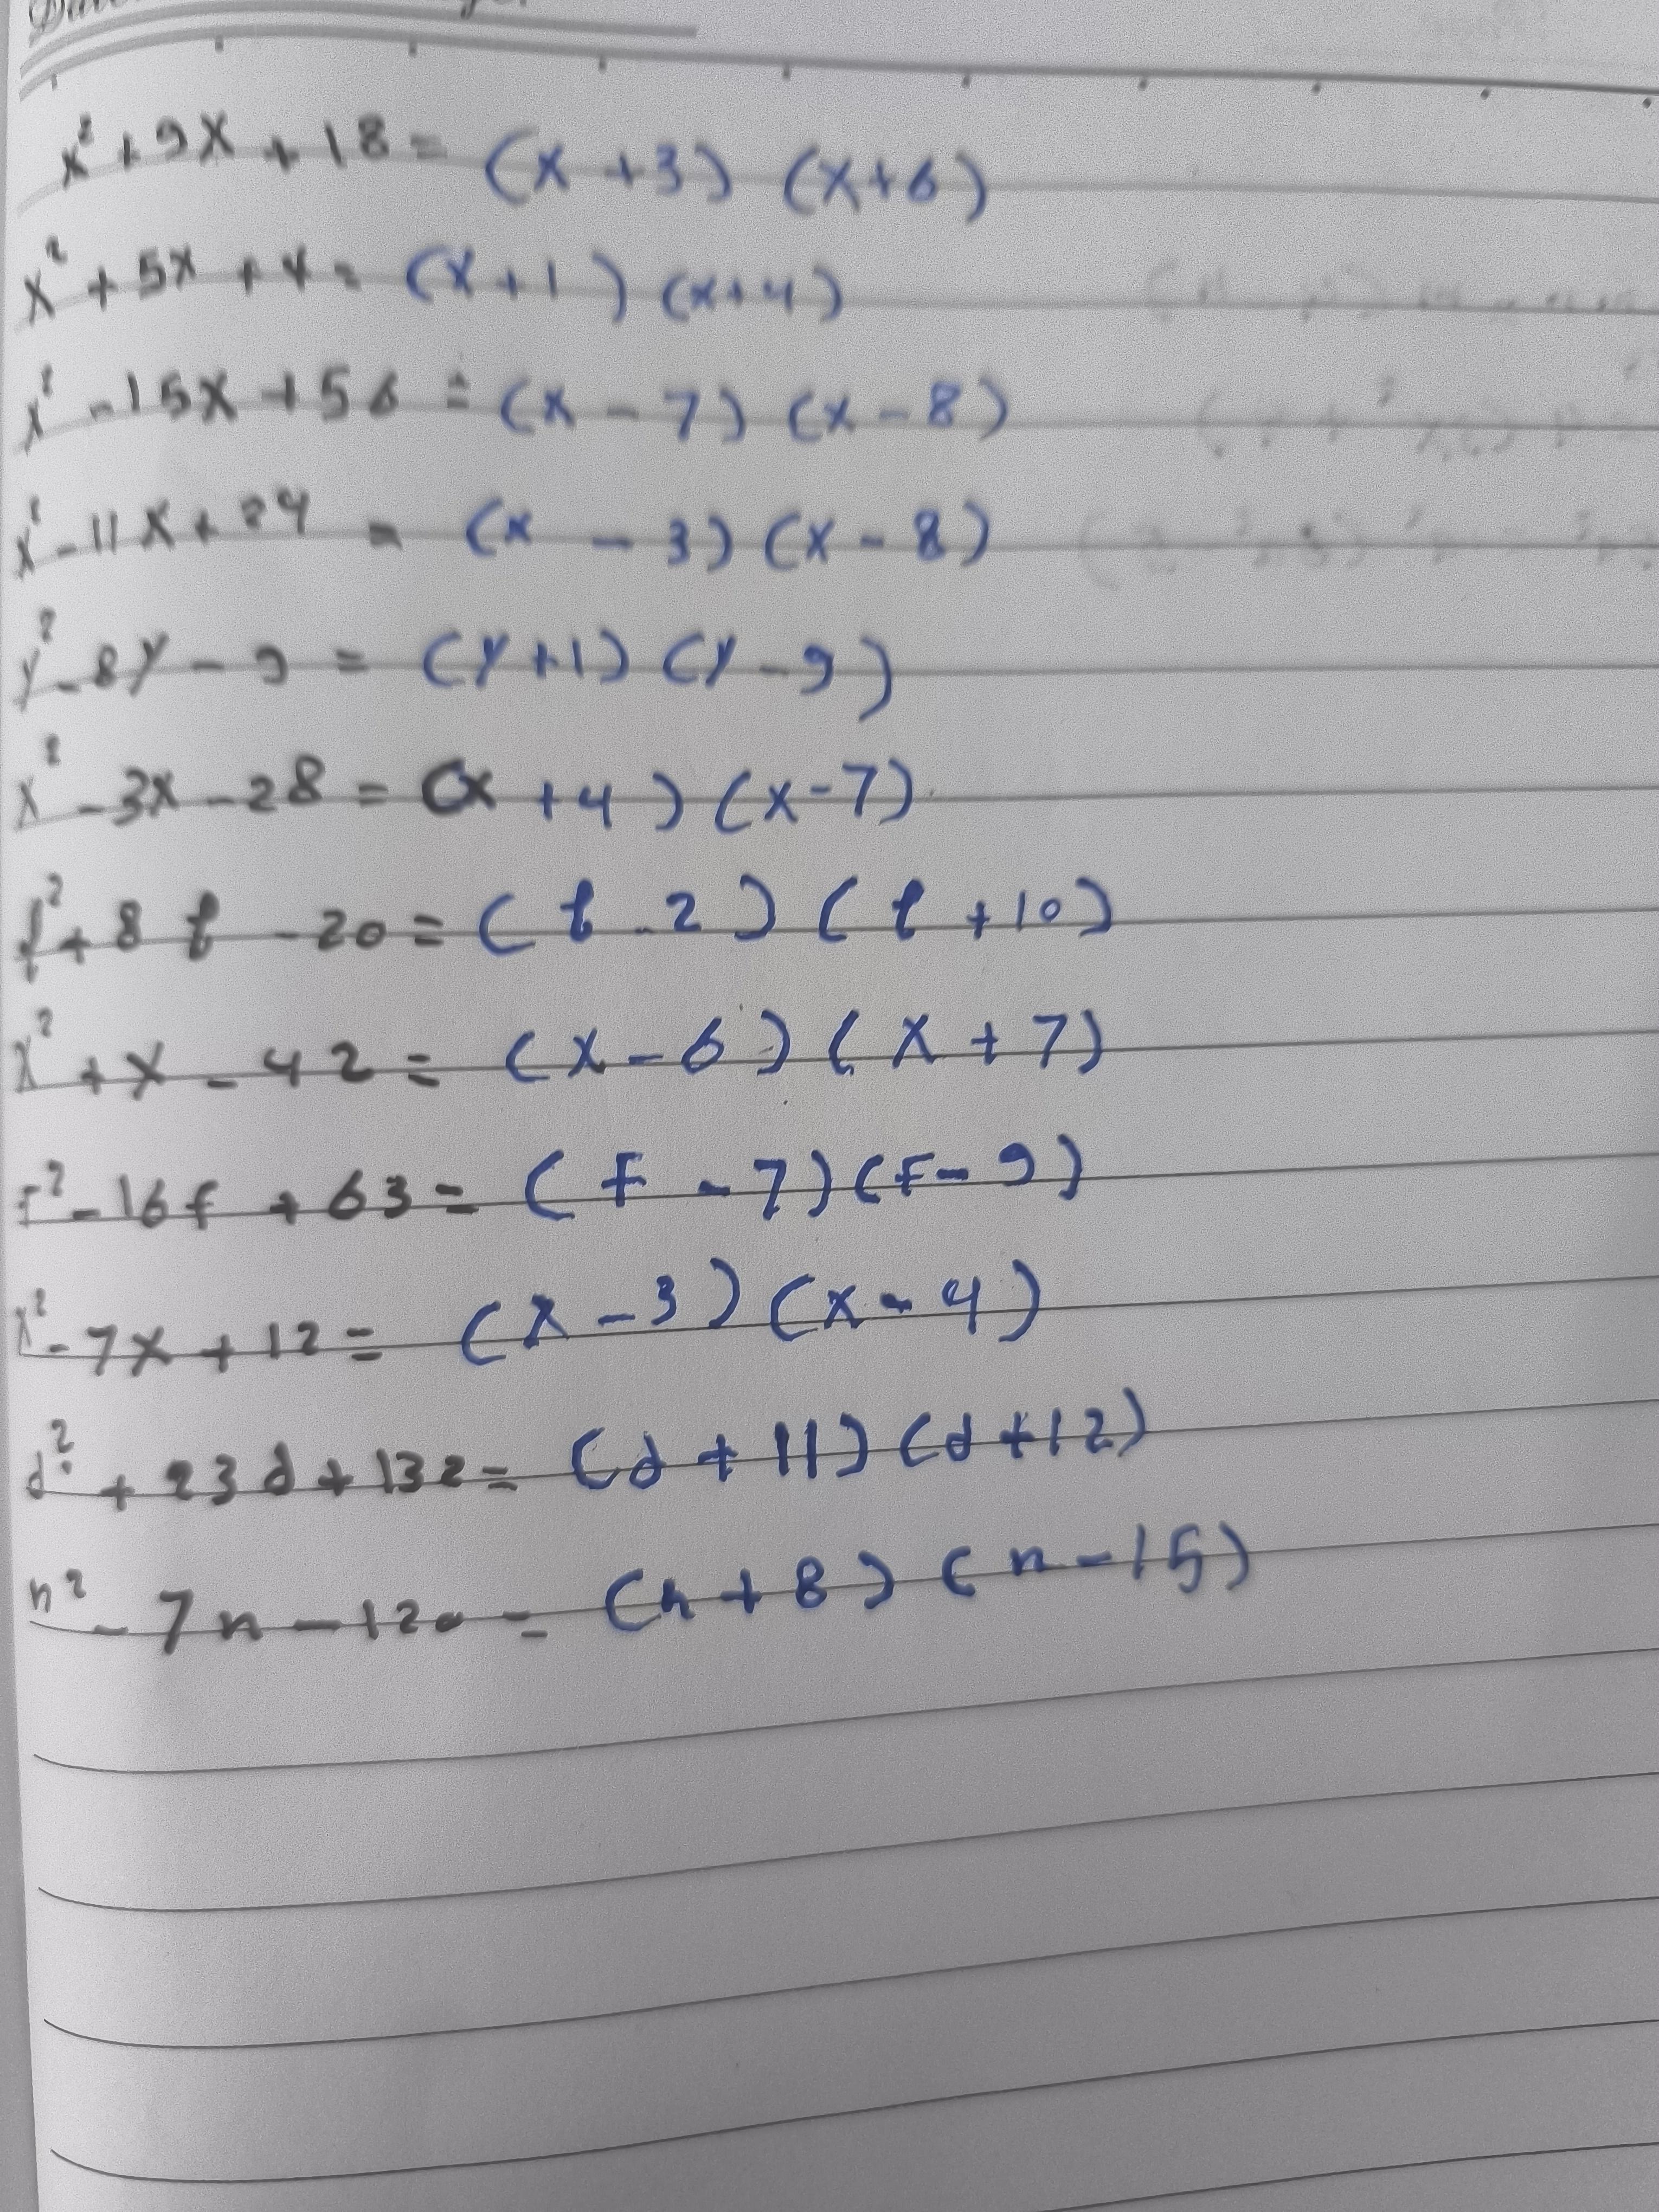 x² + 9x + 18 = (x + 3) (x + 6)
x² + 5x + 4 = (x + 1) (x + 4)
x² - 15x + 56 = (x - 7) (x - 8)
x² - 11x + 24 = (x - 3) (x - 8)
y² - 8y - 9 = (y + 1) (y - 9)
x² - 3x - 28 = (x + 4) (x - 7)
t² + 8t - 20 = (t - 2) (t + 10)
x² + x - 42 = (x - 6) (x + 7)
f² - 16f + 63 = (f - 7) (f - 9)
x² - 7x + 12 = (x - 3) (x - 4)
d² + 23d + 132 = (d + 11) (d + 12)
n² - 7n - 120 = (n + 8) (n - 15)